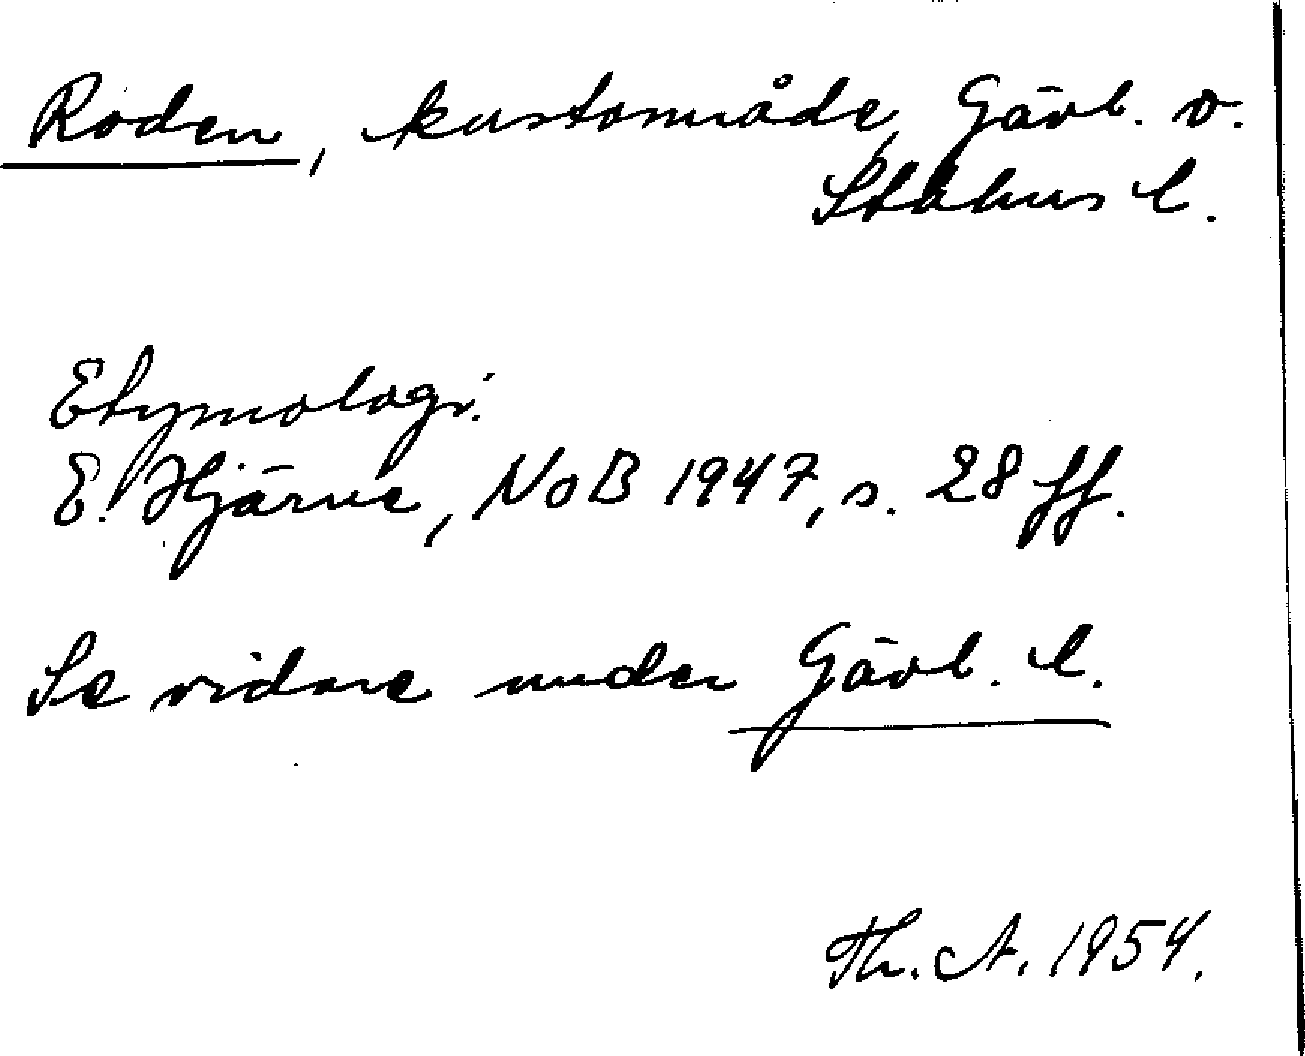 Roden, kustområde, Gävl. o.
Sthlms l.
Etymologi:
E. Hjärne, NoB 1947, s. 28 ff.
Se vidare under Gävl. l.
Th. A. 1954.